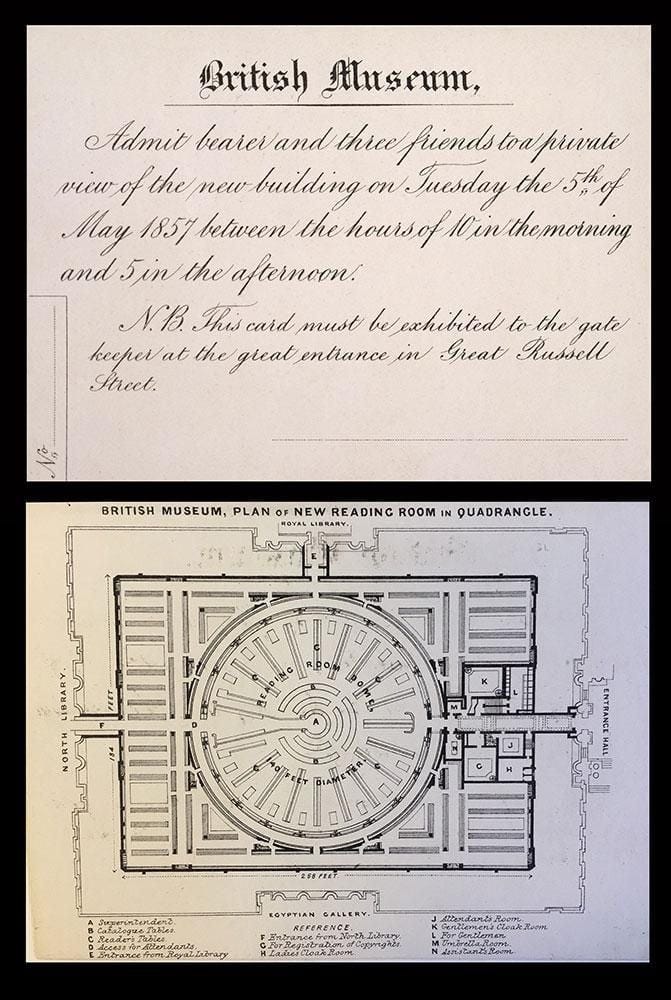 British Museum,
Admit bearer and three friends to a private
view of the new building on Tuesday the 5th of
May 1857 between the hours of 10 in the morning
and 5 in the afternoon.
N.B. This card must be exhibited to the gate
keeper at the great entrance in Great Russell
Street.
No
BRITISH MUSEUM, PLAN OF NEW READING ROOM IN QUADRANGLE.
ROYAL LIBRARY.
E
NORTH LIBRARY.
F
184 FEET
D
READING ROOM DOME,
140 FEET DIAMETER
A
B
B
C
C
C
C
C
K
L
M
N
J
G
H
ENTRANCE HALL
258 FEET
EGYPTIAN GALLERY.
REFERENCE.
A Superintendent.
B Catalogue Tables.
C Readers Tables.
D Access for Attendants.
E Entrance from Royal Library
F Entrance from North Library.
G For Registration of Copyrights.
H Ladies Cloak Room
J Attendants Room.
K Gentlemen's Cloak Room
L For Gentlemen
M Umbrella Room.
N Assistant's Room